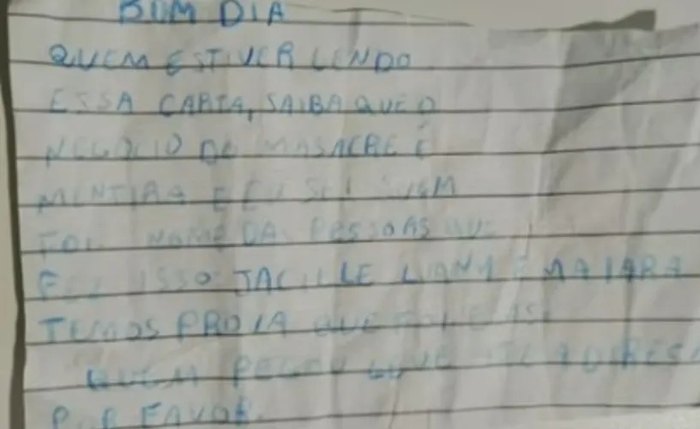 BOM DIA
QUEM ESTIVER LENDO
ESSA CARTA, SAIBA QUE O
NEGOCIO DO MASACRE É
MENTIRA E EU SEI QUEM
FOI NOME DA PESSOAS QUE
FEZ ISSO JACIELE MAIARA
TEMOS PROVA QUE
QUEM PEGOU
POR FAVOR